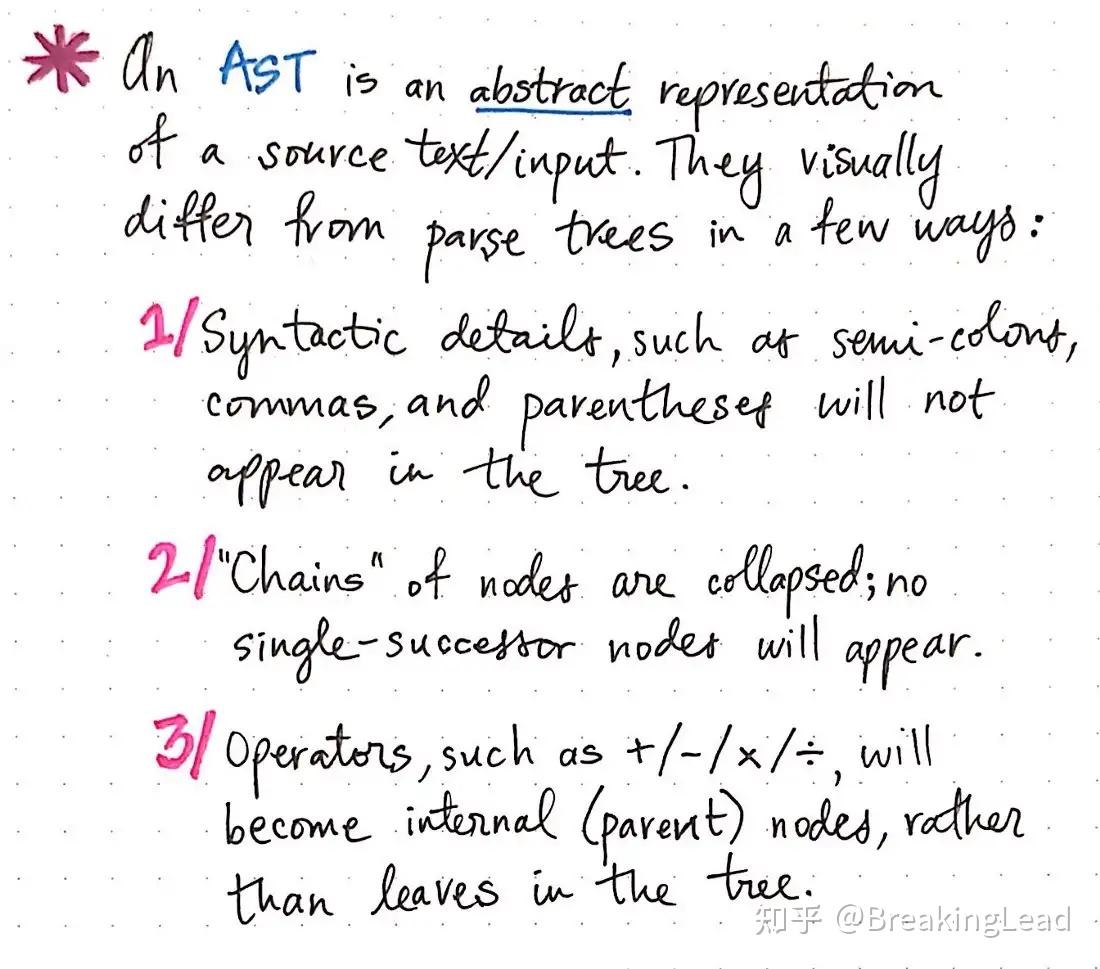 An AST is an abstract representation
of a source text/input. They visually
differ from parse trees in a few ways:
1/ Syntactic details, such as semi-colons,
commas, and parentheses will not
appear in the tree.
2/ "Chains" of nodes are collapsed; no
single-successor nodes will appear.
3/ Operators, such as +/-/×/÷, will
become internal (parent) nodes, rather
than leaves in the tree.
知乎 @BreakingLead